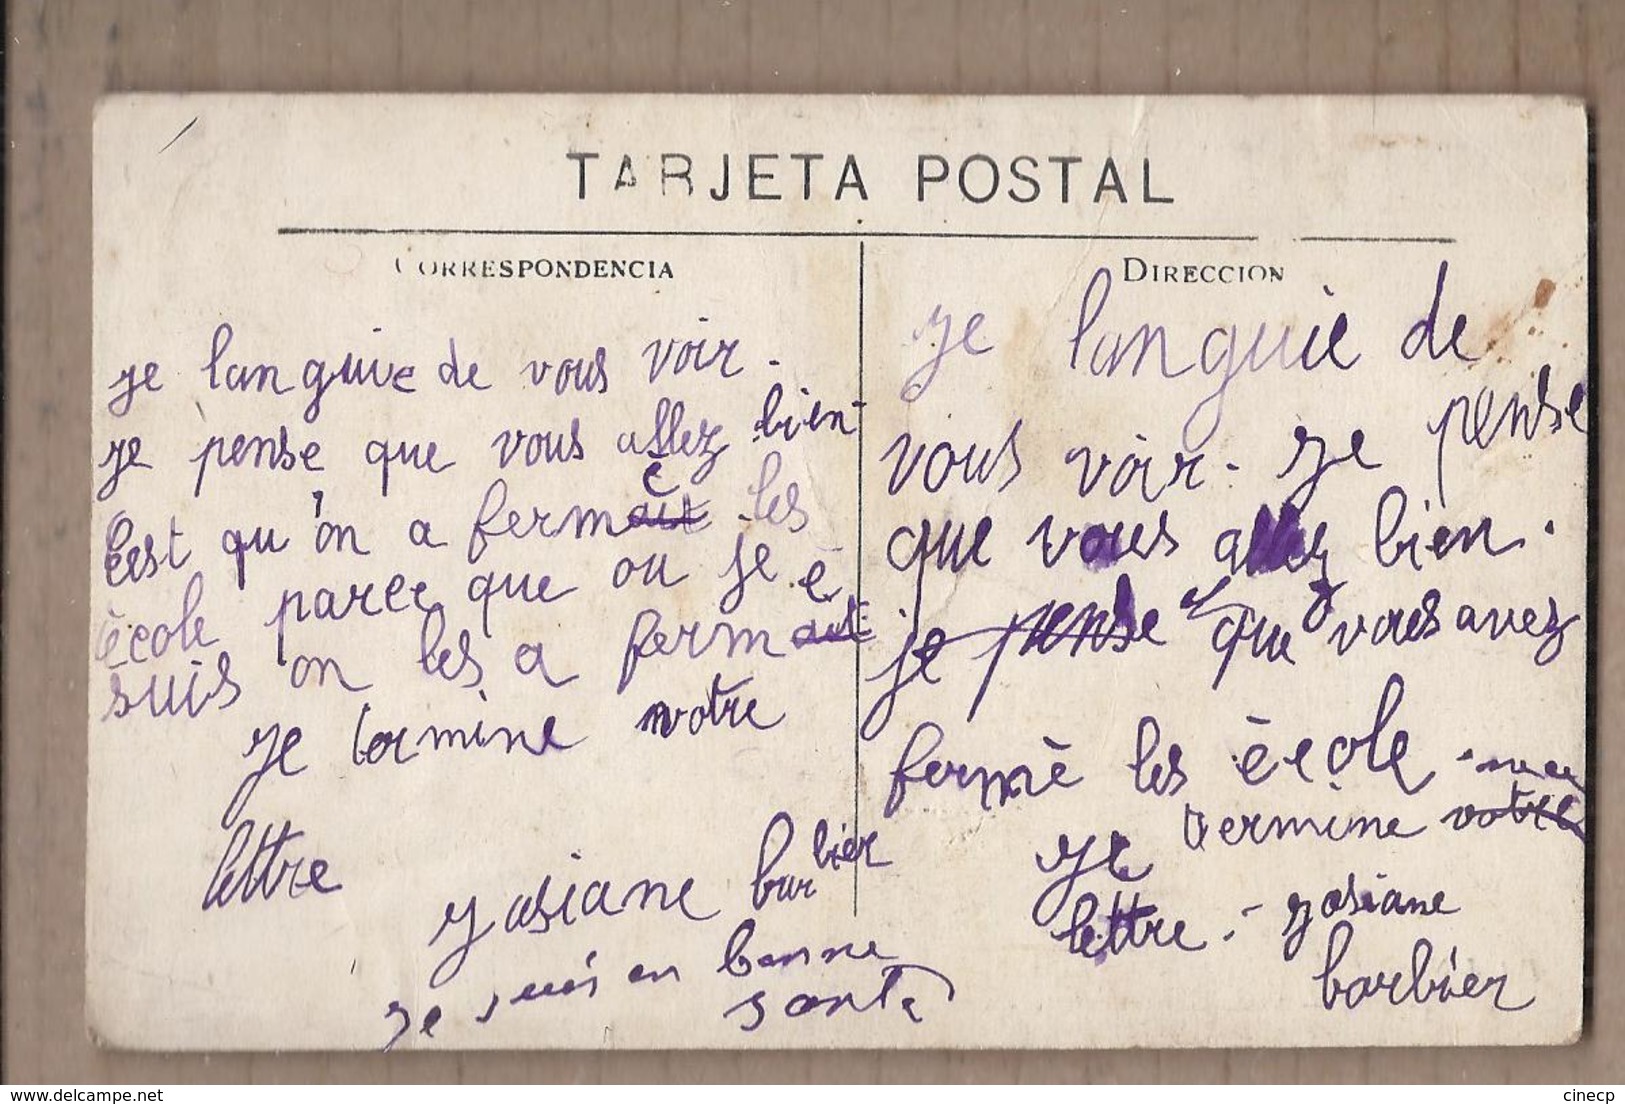 TARJETA POSTAL
CORRESPONDENCIA
je languie de vous voir.
je pense que vous allez bien
Eest qu'on a fermé les
école parce que ou je
suis on les a fermé
je termine votre
lettre
yosiane barbier
je suis en bonne
santé
DIRECCION
je languie de
vous voir. je pense
que vous allez bien.
je pense que vous avez
fermè les école.
je termine votre
lettre. yosiane
barbier
www.delcampe.net
cinecp